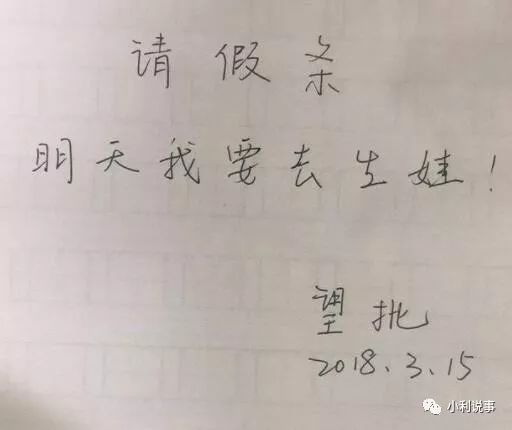 请假条
明天我要去生娃！
望批
2018.3.15
小利说事